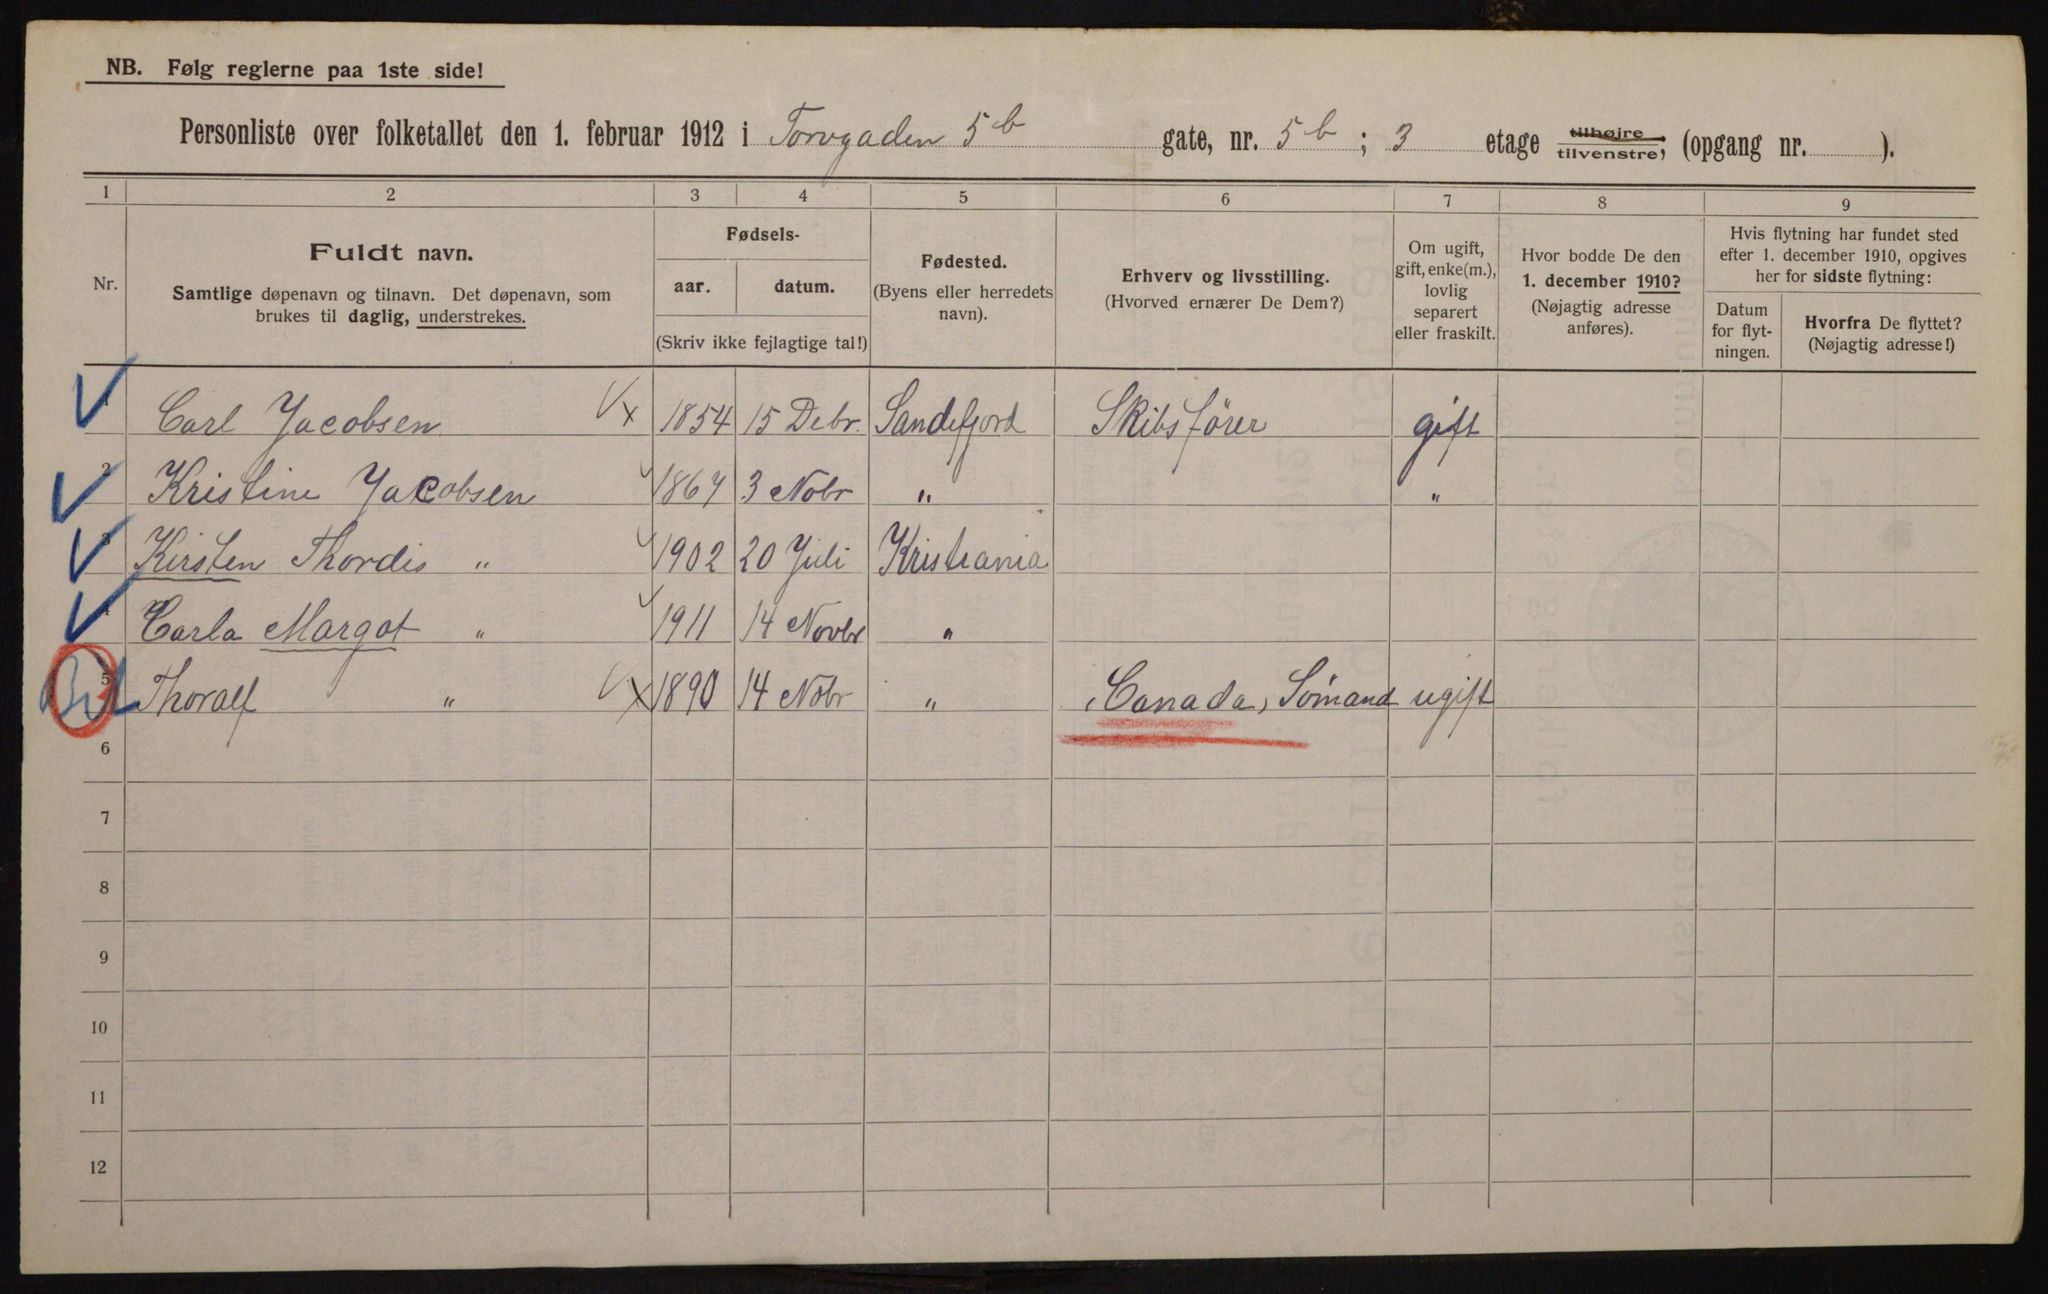 NB. Følg reglerne paa 1ste side!
Personliste over folketallet den 1. februar 1912 i Torvgaden 5b gate, nr. 5b ; 3 etage tilhøjre, tilvenstre, (opgang nr. ).
1 2 3 4 5 6 7 8 9
Nr.
Fuldt navn.
Samtlige døpenavn og tilnavn. Det døpenavn, som
brukes til daglig, understrekes.
Fødsels-
aar. datum.
(Skriv ikke fejlagtige tal!)
Fødested.
(Byens eller herredets
navn).
Erhverv og livsstilling.
(Hvorved ernærer De Dem?)
Om ugift,
gift, enke(m.),
lovlig
separert
eller fraskilt.
Hvor bodde De den
1. december 1910?
(Nøjagtig adresse
anføres).
Hvis flytning har fundet sted
efter 1. december 1910, opgives
her for sidste flytning:
Datum
for flyt-
ningen.
Hvorfra De flyttet?
(Nøjagtig adresse!)
1 Carl Jacobsen 1854 15 Debr. Sandefjord Skibsförer gift
2 Kristine Jacobsen 1867 3 Nobr " "
3 Kirsten Thordis " 1902 20 Juli Kristiania
4 Carla Margot " 1911 14 Novbr "
5 Thoralf " 1890 14 Nobr " Canada, Sömand ugift
6
7
8
9
10
11
12